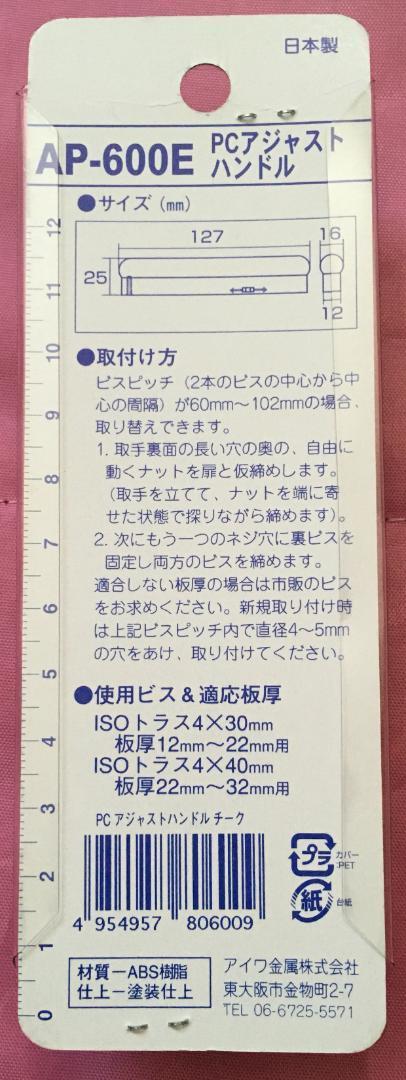 日本製
AP-600E PCアジャスト
ハンドル
●サイズ(mm)
127
16
25
12
●取付け方
ビスピッチ(2本のビスの中心から中
心の間隔)が60mm〜102mmの場合、
取り替えできます。
1. 取手裏面の長い穴の奥の、自由に
動くナットを扉と仮締めします。
(取手を立てて、ナットを端に寄
せた状態で探りながら締めます)。
2. 次にもう一つのネジ穴に裏ビスを
固定し両方のビスを締めます。
適合しない板厚の場合は市販のビス
をお求めください。新規取り付け時
は上記ビスピッチ内で直径4〜5mm
の穴をあけ、取り付けてください。
●使用ビス&適応板厚
ISOトラス4×30mm
板厚12mm〜22mm用
ISOトラス4×40mm
板厚22mm〜32mm用
PCアジャストハンドル チーク
4 954957 806009
プラ カバー
:PET
紙 台紙
材質−ABS樹脂
仕上−塗装仕上
アイワ金属株式会社
東大阪市金物町2-7
TEL 06-6725-5571
12
11
10
9
8
7
6
5
4
3
2
1
0